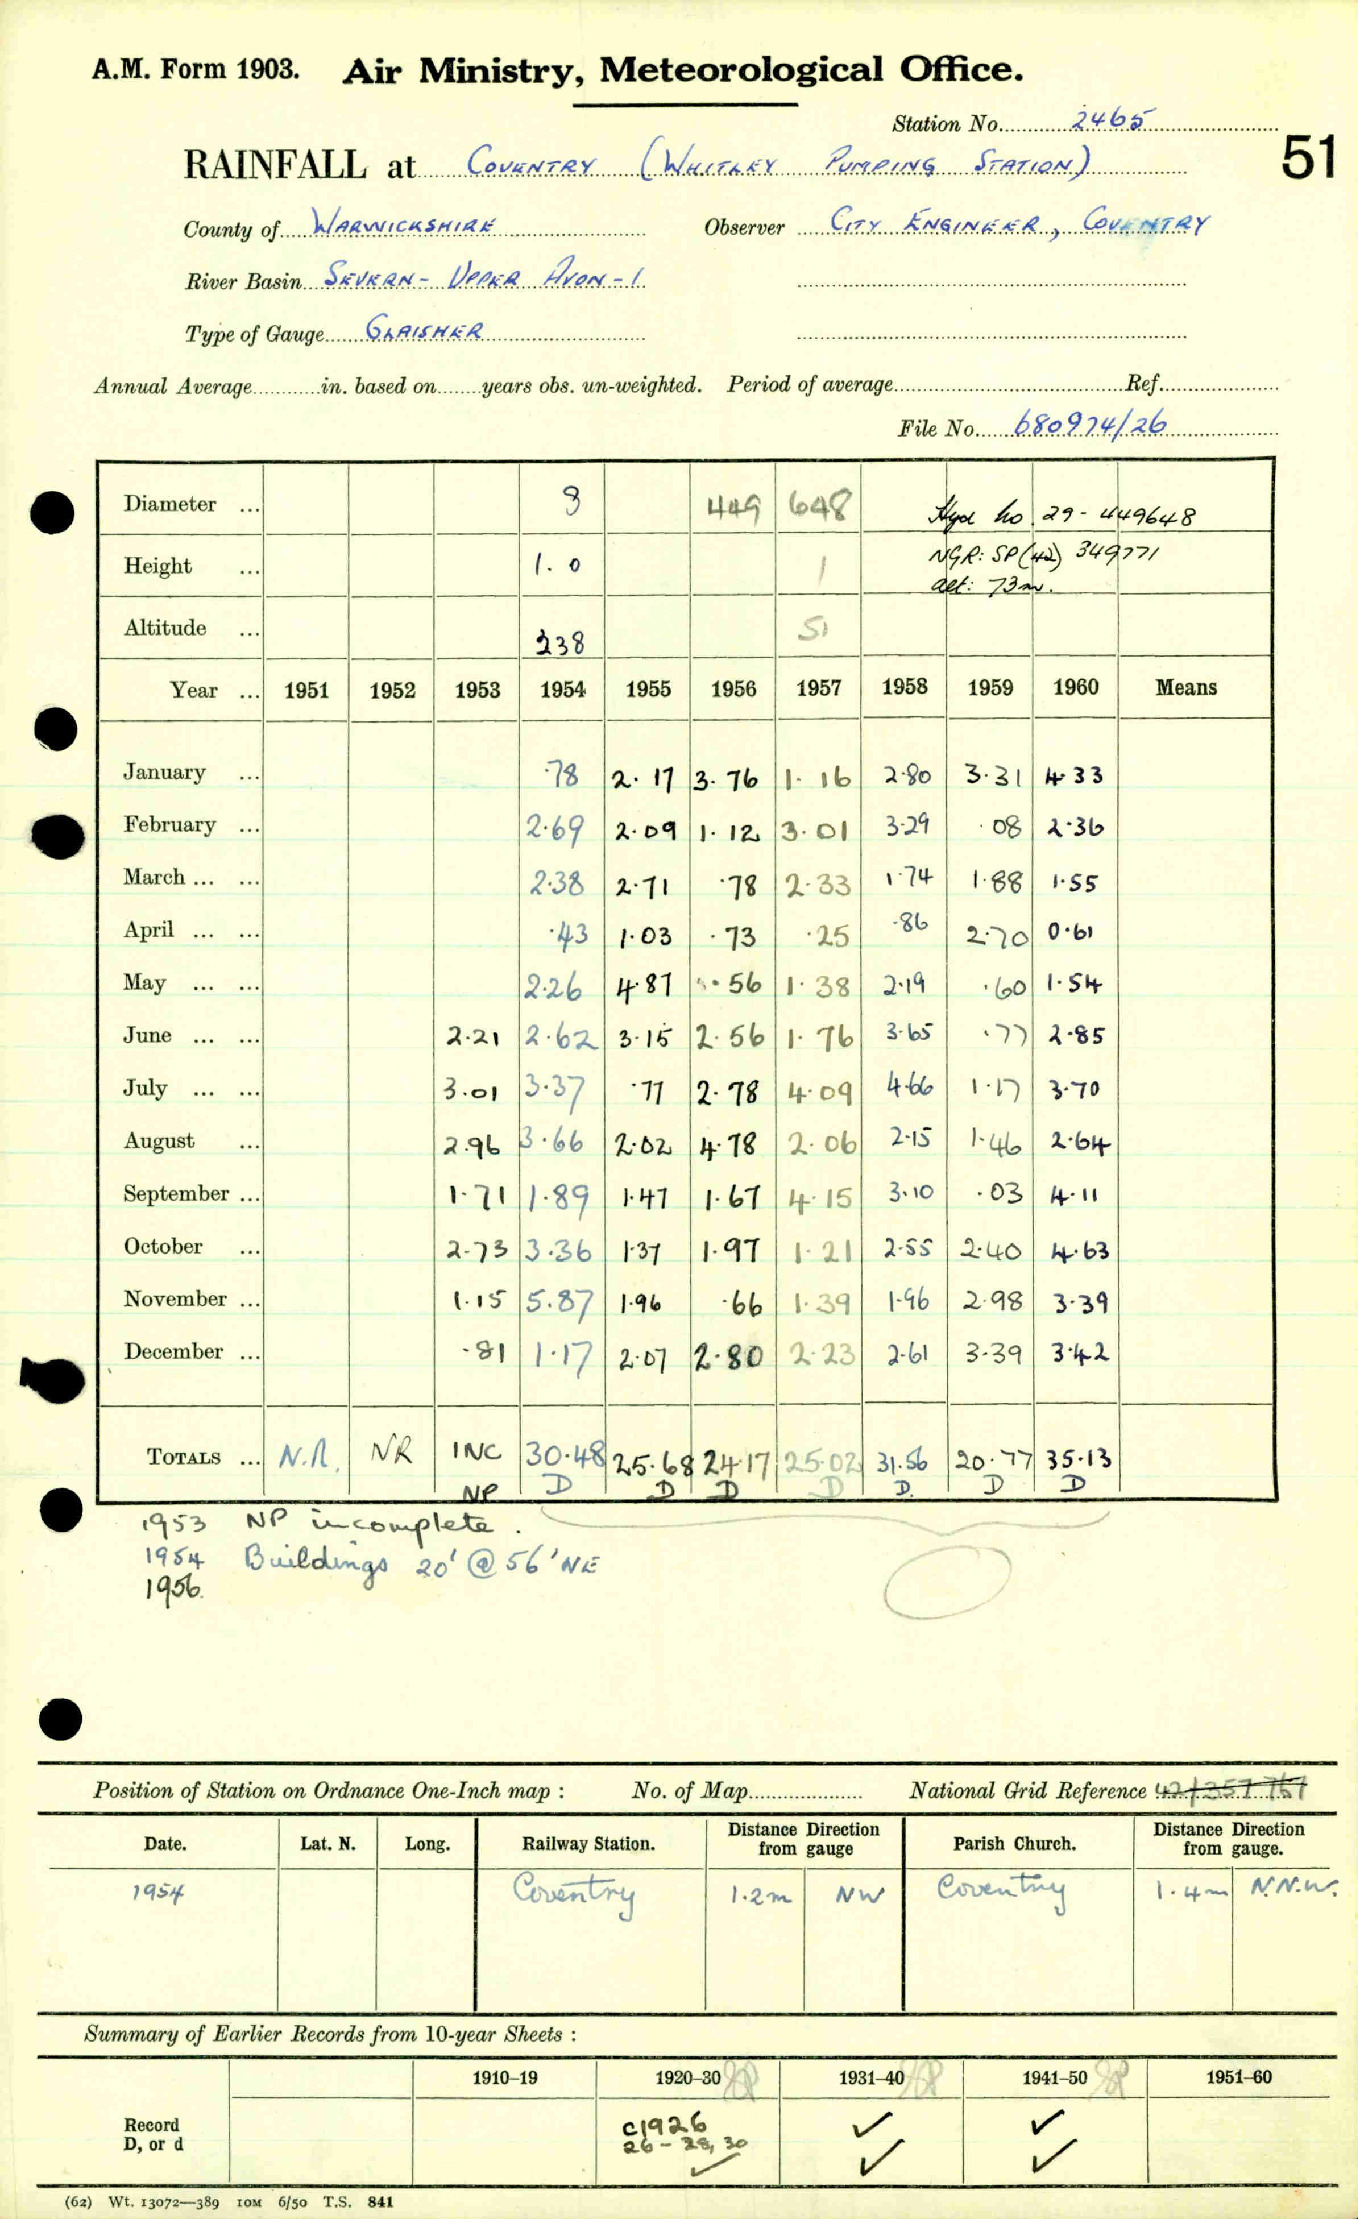 A.M. Form 1903. Air Ministry, Meteorological Office.
Station No. 2465
RAINFALL at COVENTRY (WHITLEY PUMPING STATION) 51
County of WARWICKSHIRE Observer CITY ENGINEER, COVENTRY
River Basin SEVERN - UPPER AVON - 1
Type of Gauge GLAISHER
Annual Average in. based on years obs. un-weighted. Period of average Ref.
File No. 680974/26
Diameter ... 8 449 648 Hyd No 29 - 449648
Height ... 1.0 1 NGR: SP(42) 349771
alt: 73m.
Altitude ... 238 51
Year ... 1951 1952 1953 1954 1955 1956 1957 1958 1959 1960 Means
January ... ·78 2·17 3·76 1·16 2·80 3·31 4·33
February ... 2·69 2·09 1·12 3·01 3·29 ·08 2·36
March ... ... 2·38 2·71 ·78 2·33 1·74 1·88 1·55
April ... ... ·43 1·03 ·73 ·25 ·86 2·70 0·61
May ... ... 2·26 4·87 ·56 1·38 2·19 ·60 1·54
June ... ... 2·21 2·62 3·15 2·56 1·76 3·65 ·77 2·85
July ... ... 3·01 3·37 ·77 2·78 4·09 4·66 1·17 3·70
August ... 2·96 3·66 2·02 4·78 2·06 2·15 1·46 2·64
September ... 1·71 1·89 1·47 1·67 4·15 3·10 ·03 4·11
October ... 2·73 3·36 1·37 1·97 1·21 2·55 2·40 4·63
November ... 1·15 5·87 1·96 ·66 1·39 1·96 2·98 3·39
December ... ·81 1·17 2·07 2·80 2·23 2·61 3·39 3·42
TOTALS ... N.R. NR INC 30·48 25·68 24·17 25·02 31·56 20·77 35·13
NP D D D D D. D D
1953 NP incomplete.
1954 Buildings 20' @ 56' NE
1956.
Position of Station on Ordnance One-Inch map : No. of Map National Grid Reference 42/357 767
Date. Lat. N. Long. Railway Station. Distance from gauge Direction Parish Church. Distance from gauge. Direction
1954 Coventry 1.2m NW Coventry 1.4m N.N.W.
Summary of Earlier Records from 10-year Sheets :
1910–19 1920–30 1931–40 1941–50 1951–60
Record c1926 ✓ ✓
D, or d 26 – 28, 30 ✓ ✓ ✓
(62) Wt. 13072—389 10M 6/50 T.S. 841